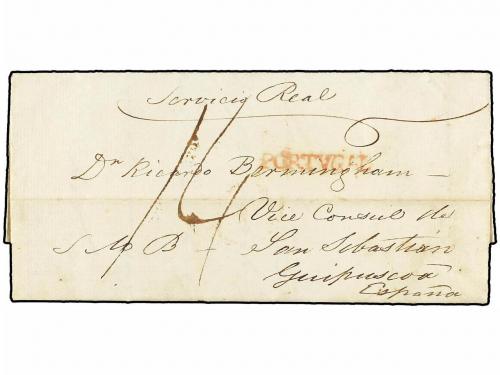 Servicio Real
PORTVGAL
Dn Ricardo Bermingham —
14
Vice Consul de
S M B — San Sebastián
Guipuscoa
España